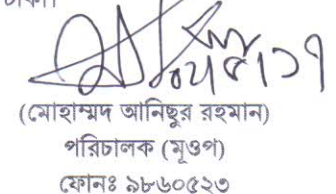 ০২/৫/১৭
(মোহাম্মদ আনিছুর রহমান)
পরিচালক (মূওপ)
ফোনঃ ৯৮৬০৫২৩